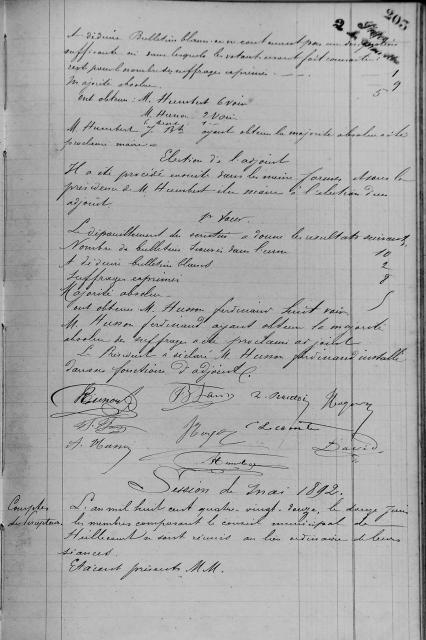 205
A déduire Bulletins blancs ou ne contenant pas une désignation
suffisante ou dans lesquels les votants se sont fait connaître
reste pour le nombre des suffrages exprimés 9
Majorité absolue 5
ont obtenu : M. Humbert 6 voix
M. 2 voix
M. Humbert ayant obtenu la majorité absolue a été
proclamé maire
Election de l'adjoint
Il a été procédé ensuite dans les mêmes formes et sous la
présidence de M. Humbert élu maire à l'élection d'un
adjoint.
1er Tour.
Le dépouillement du scrutin a donné les résultats suivants,
Nombre de bulletins trouvés dans l'urne 10
A déduire bulletins blancs 2
Suffrages exprimés 8
Majorité absolue 5
ont obtenu M. Husson ferdinand huit voix
M. Husson ferdinand ayant obtenu la majorité
absolue de suffrage a été proclamé adjoint
Le Président a déclaré M. Husson ferdinand installé
dans ses fonctions d'adjoint.
Lecomte David
Session de Mai 1892.
Comptes
L'an mil huit cent quatre vingt-douze, le douze juin
les membres composant le conseil municipal de
se sont réunis au lieu ordinaire de leurs
séances.
Etaient présents M M.